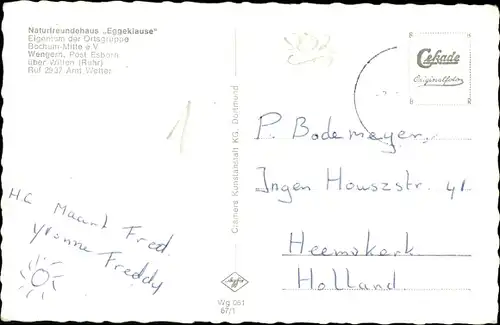 Naturfreundehaus „Eggeklause"
Eigentum der Ortsgruppe
Bochum-Mitte e.V.
Wengern, Post Esborn
über Witten (Ruhr)
Ruf 2937 Amt Wetter
Cekade
Originalfoto
Cramers Kunstanstalt KG, Dortmund
P. Bodemeyer.
Ingen Houszstr. 41
Heemskerk
Holland
H.C. Maart Fred
Yvonne Freddy
Agfa
Wg 061
67/1